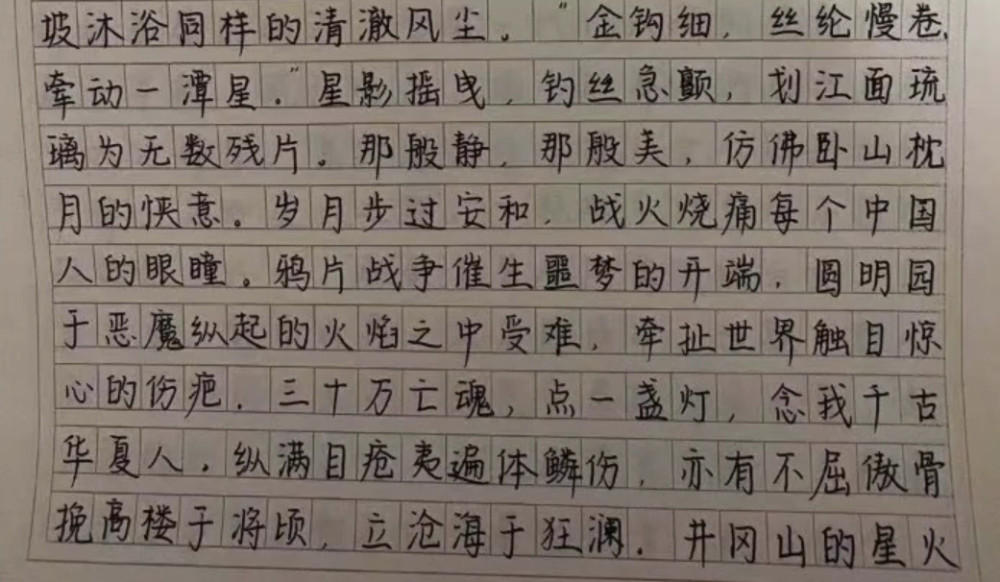 坡沐浴同样的清澈风尘。“金钩细，丝纶慢卷，
牵动一潭星。”星影摇曳，钓丝急颤，划江面琉
璃为无数残片。那般静，那般美，仿佛卧山枕
月的惬意。岁月步过安和，战火烧痛每个中国
人的眼瞳。鸦片战争催生噩梦的开端，圆明园
于恶魔纵起的火焰之中受难，牵扯世界触目惊
心的伤疤。三十万亡魂，点一盏灯，念我千古
华夏人。纵满目疮夷遍体鳞伤，亦有不屈傲骨
挽高楼于将顷，立沧海于狂澜。井冈山的星火